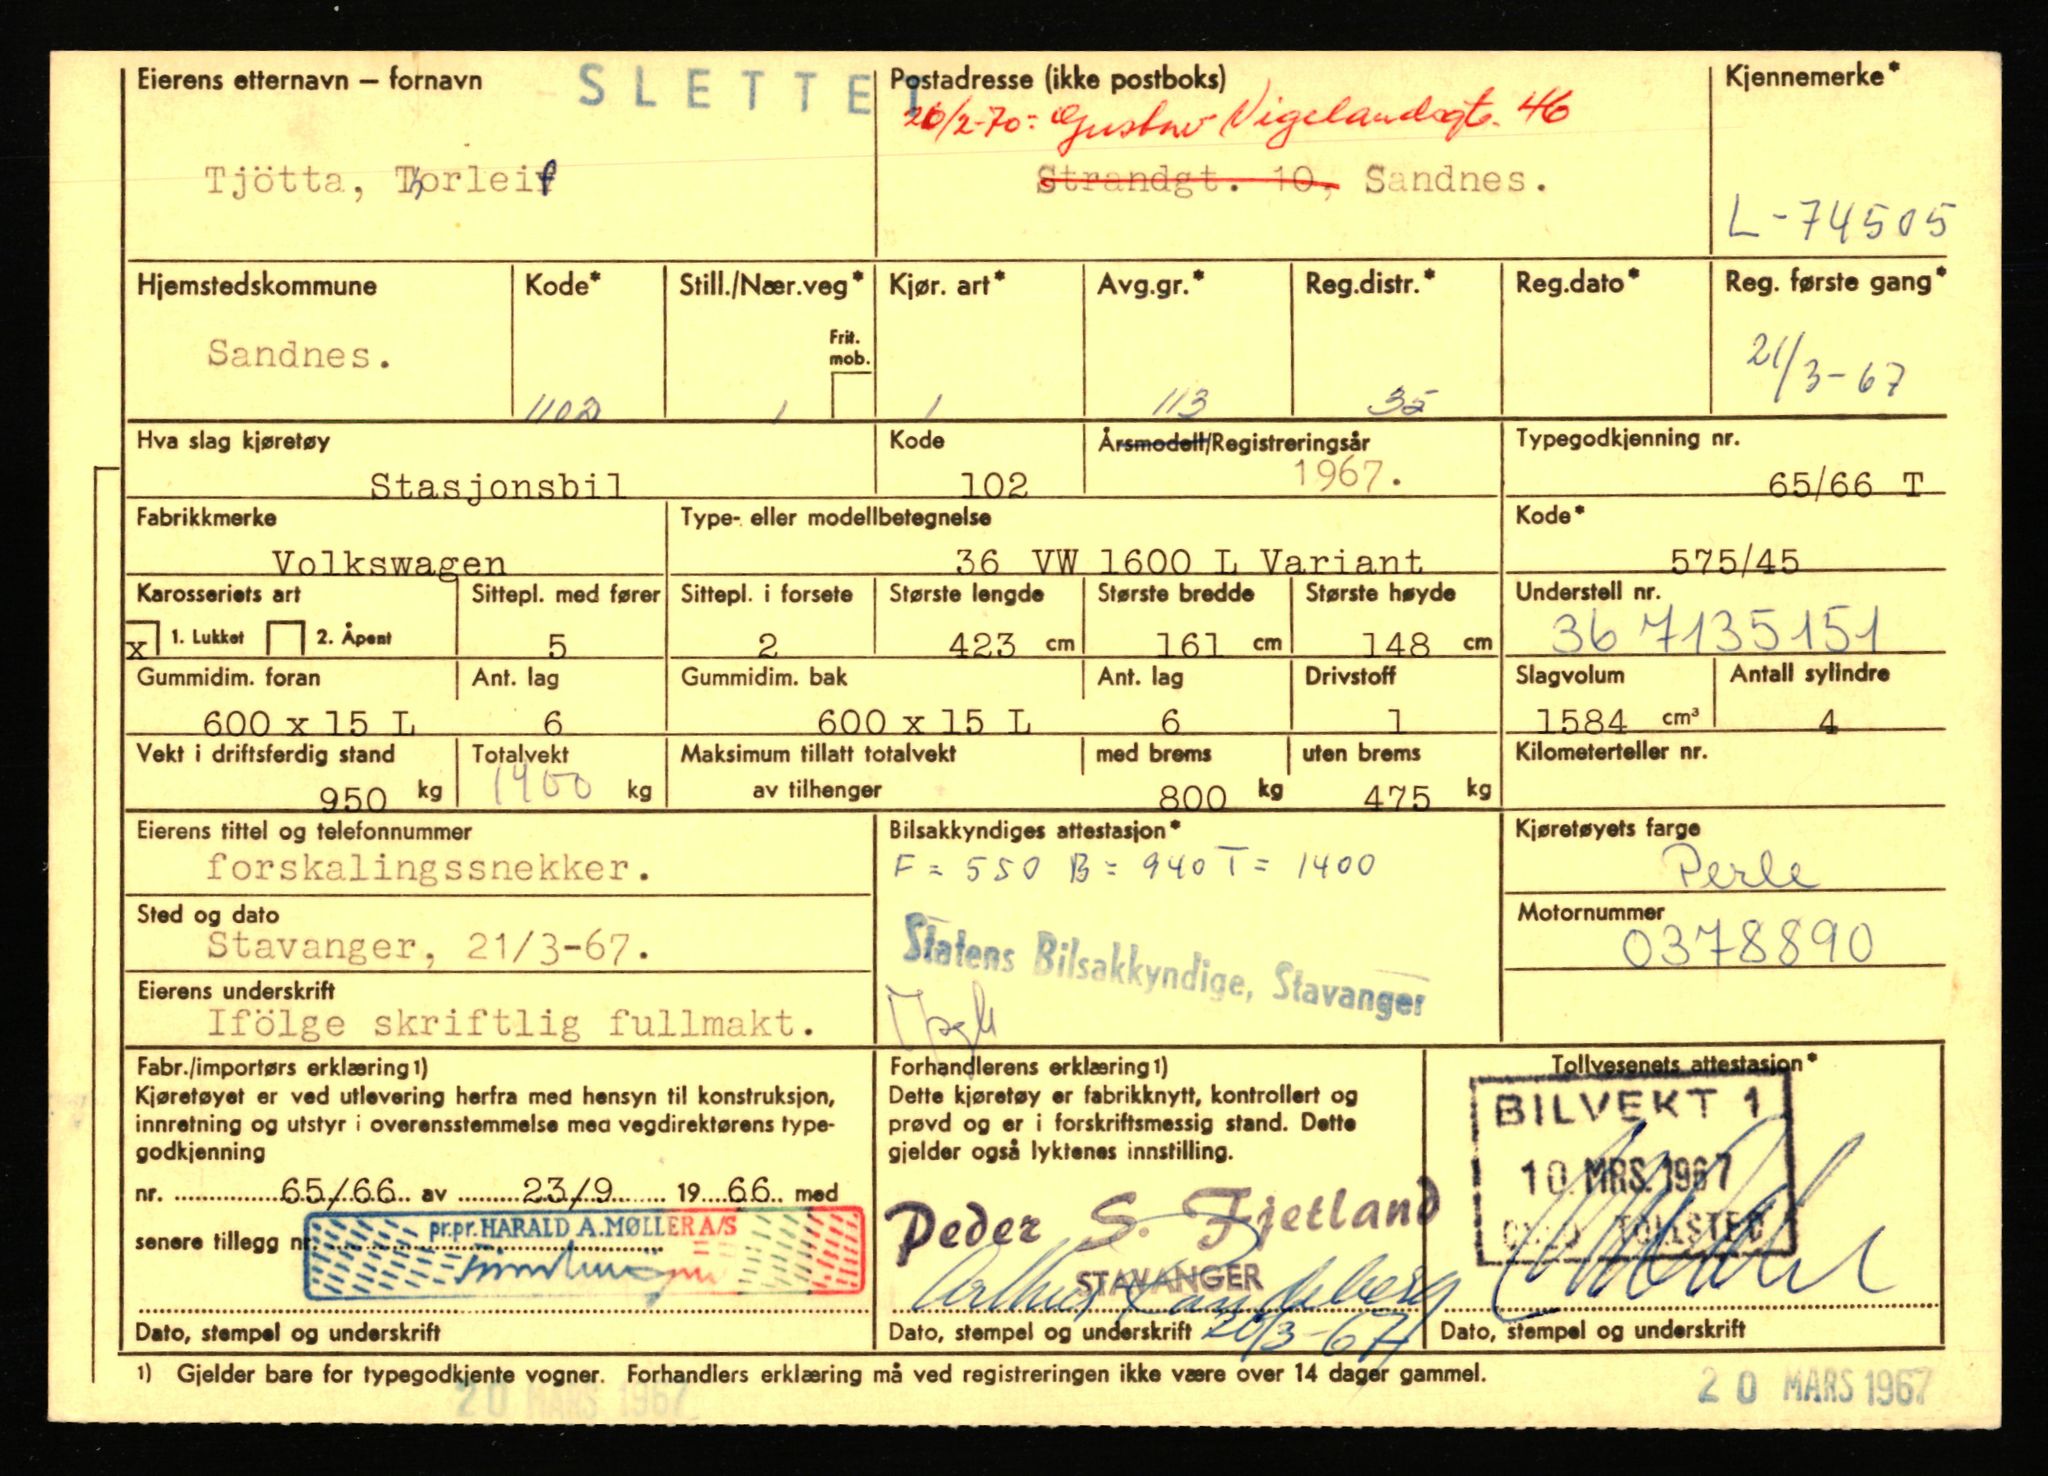 Eierens etternavn – fornavn
SLETTET
Tjötta, Thorleif
Postadresse (ikke postboks)
20/2-70: Gustav Vigelandsgt. 46
Strandgt. 10, Sandnes.
Kjennemerke*
L-74505
Hjemstedskommune
Sandnes.
Kode*
1102
Still./Nær.veg*
Frit. mob.
1
Kjør. art*
1
Avg.gr.*
113
Reg.distr.*
35
Reg.dato*
Reg. første gang*
21/3-67
Hva slag kjøretøy
Stasjonsbil
Kode
102
Årsmodell/Registreringsår
1967.
Typegodkjenning nr.
65/66 T
Fabrikkmerke
Volkswagen
Type- eller modellbetegnelse
36 VW 1600 L Variant
Kode*
575/45
Karosseriets art
x 1. Lukket 2. Åpent
Sittepl. med fører
5
Sittepl. i forsete
2
Største lengde
423 cm
Største bredde
161 cm
Største høyde
148 cm
Understell nr.
367135151
Gummidim. foran
600 x 15 L
Ant. lag
6
Gummidim. bak
600 x 15 L
Ant. lag
6
Drivstoff
1
Slagvolum
1584 cm³
Antall sylindre
4
Vekt i driftsferdig stand
950 kg
Totalvekt
1400 kg
Maksimum tillatt totalvekt
av tilhenger
med brems
800 kg
uten brems
475 kg
Kilometerteller nr.
Eierens tittel og telefonnummer
forskalingssnekker.
Bilsakkyndiges attestasjon*
F = 550 B = 940 T = 1400
Statens Bilsakkyndige, Stavanger
Kjøretøyets farge
Perle
Sted og dato
Stavanger, 21/3-67.
Motornummer
0378890
Eierens underskrift
Ifölge skriftlig fullmakt.
Fabr./importørs erklæring 1)
Kjøretøyet er ved utlevering herfra med hensyn til konstruksjon,
innretning og utstyr i overensstemmelse med vegdirektørens type-
godkjenning
nr. 65/66 av 23/9 1966 med
senere tillegg nr.
pr.pr. HARALD A. MØLLER A/S
Dato, stempel og underskrift
Forhandlerens erklæring 1)
Dette kjøretøy er fabrikknytt, kontrollert og
prøvd og er i forskriftsmessig stand. Dette
gjelder også lyktenes innstilling.
Peder S. Fjetland
STAVANGER
Dato, stempel og underskrift 20/3-67
Tollvesenets attestasjon*
BILVEKT 1
10 MRS. 1967
TOLLSTED
Dato, stempel og underskrift
1) Gjelder bare for typegodkjente vogner. Forhandlers erklæring må ved registreringen ikke være over 14 dager gammel.
20 MARS 1967
20 MARS 1967